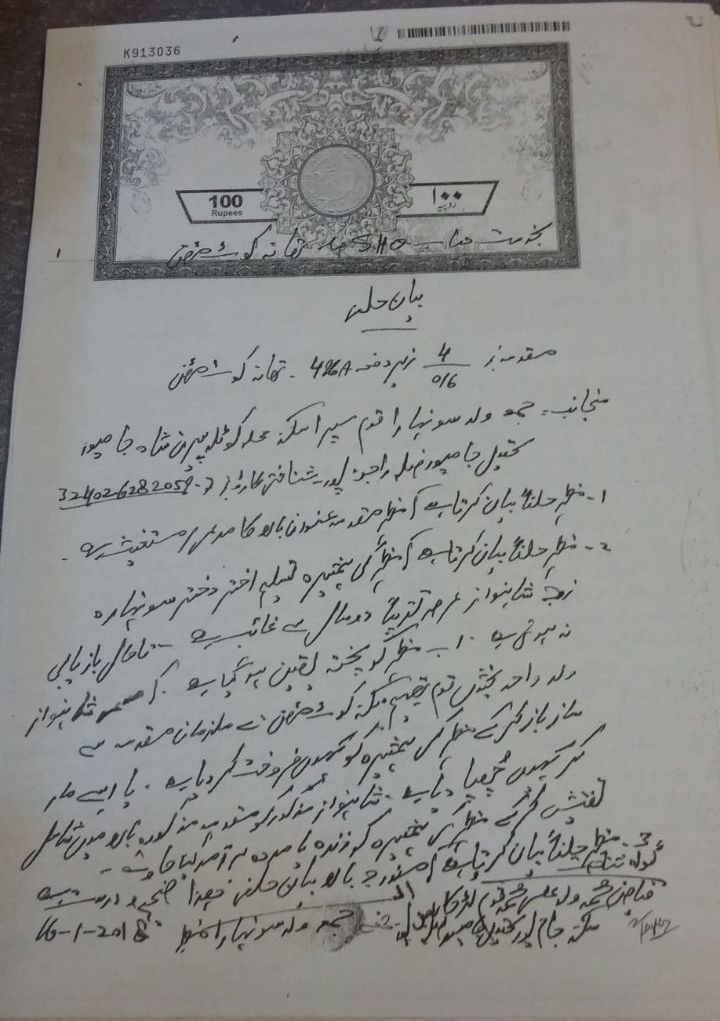 K913036
100
Rupees
۱۰۰
روپیہ
بخدمت جناب SHO صاحب تھانہ کوٹ مٹھن
بیان حلفی
مقدمہ نمبر 4/016 زیر دفعہ 496A ۔ تھانہ کوٹ مٹھن
منجانب۔ جمعہ ولد سونہارا قوم سکنہ محلہ کوٹلہ شاہ جامپور
تحصیل جامپور ضلع راجن پور شناختی کارڈ نمبر
1۔ مظہر حلفاً بیان کرتا ہے کہ مظہر مقدمہ عنوان بالا کا مدعی / مستغیث ہے۔
2۔ مظہر حلفاً بیان کرتا ہے کہ مظہر کی ہمشیرہ اختر دختر سونہارہ
زوجہ شاہنواز عرصہ تقریباً دو سال سے غائب ہے ۔ تاحال بازیابی
نہ ہوئی ہے ۔ اب مظہر کو پختہ یقین ہو گیا ہے ۔ کہ شاہنواز
ولد واحد بخش قوم سکنہ کوٹ مٹھن نے ملزمان مقدمہ سے
ساز باز کر کے مظہر کی ہمشیرہ کو کہیں فروخت کر دیا ہے ۔ یا اسے مار
کر کہیں چھپا دیا ہے ۔ شاہنواز مذکور کو مقدمہ مذکورہ بالا میں شامل
تفتیش کر کے مظہر کی ہمشیرہ کو زندہ یا مردہ برآمد کیا جاوے ۔
3۔ مظہر حلفاً بیان کرتا ہے کہ مندرجہ بالا بیان حلفی صحیح و درست ہے
گواہ شد
العبد
جمعہ ولد سونہارا
16-1-2018